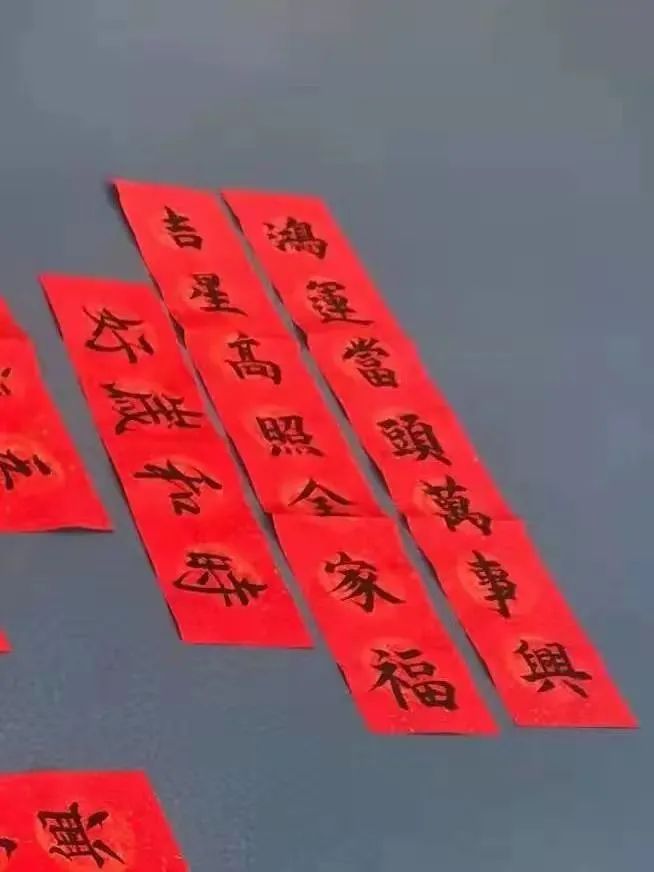 鴻運當頭萬事興
吉星高照全家福
時和歲好